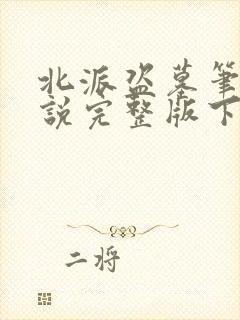 北派盗墓筆
說完整版下
二将